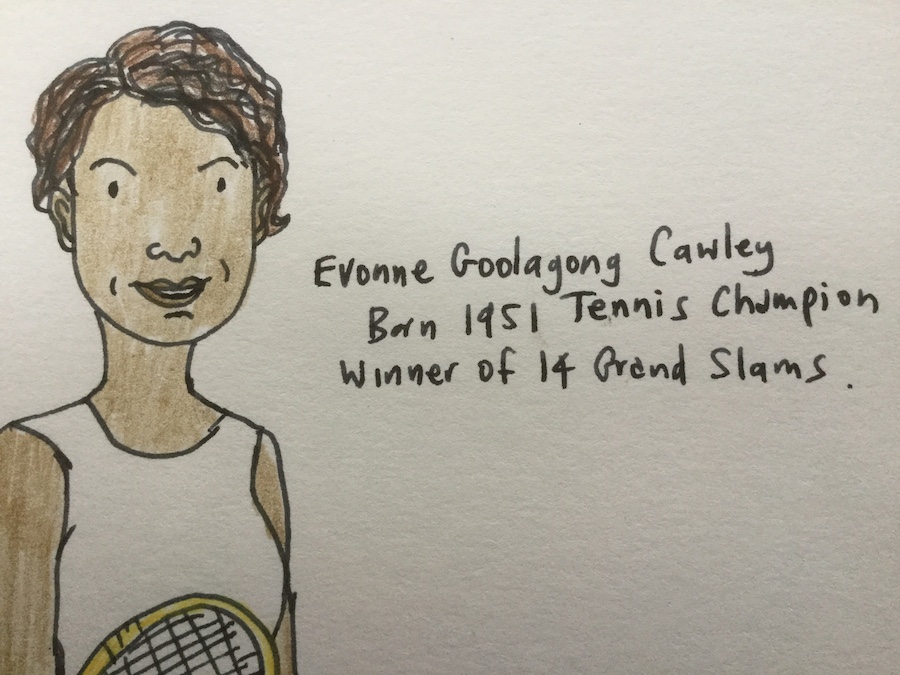 Evonne Goolagong Cawley
Born 1951 Tennis Champion
Winner of 14 Grand Slams.